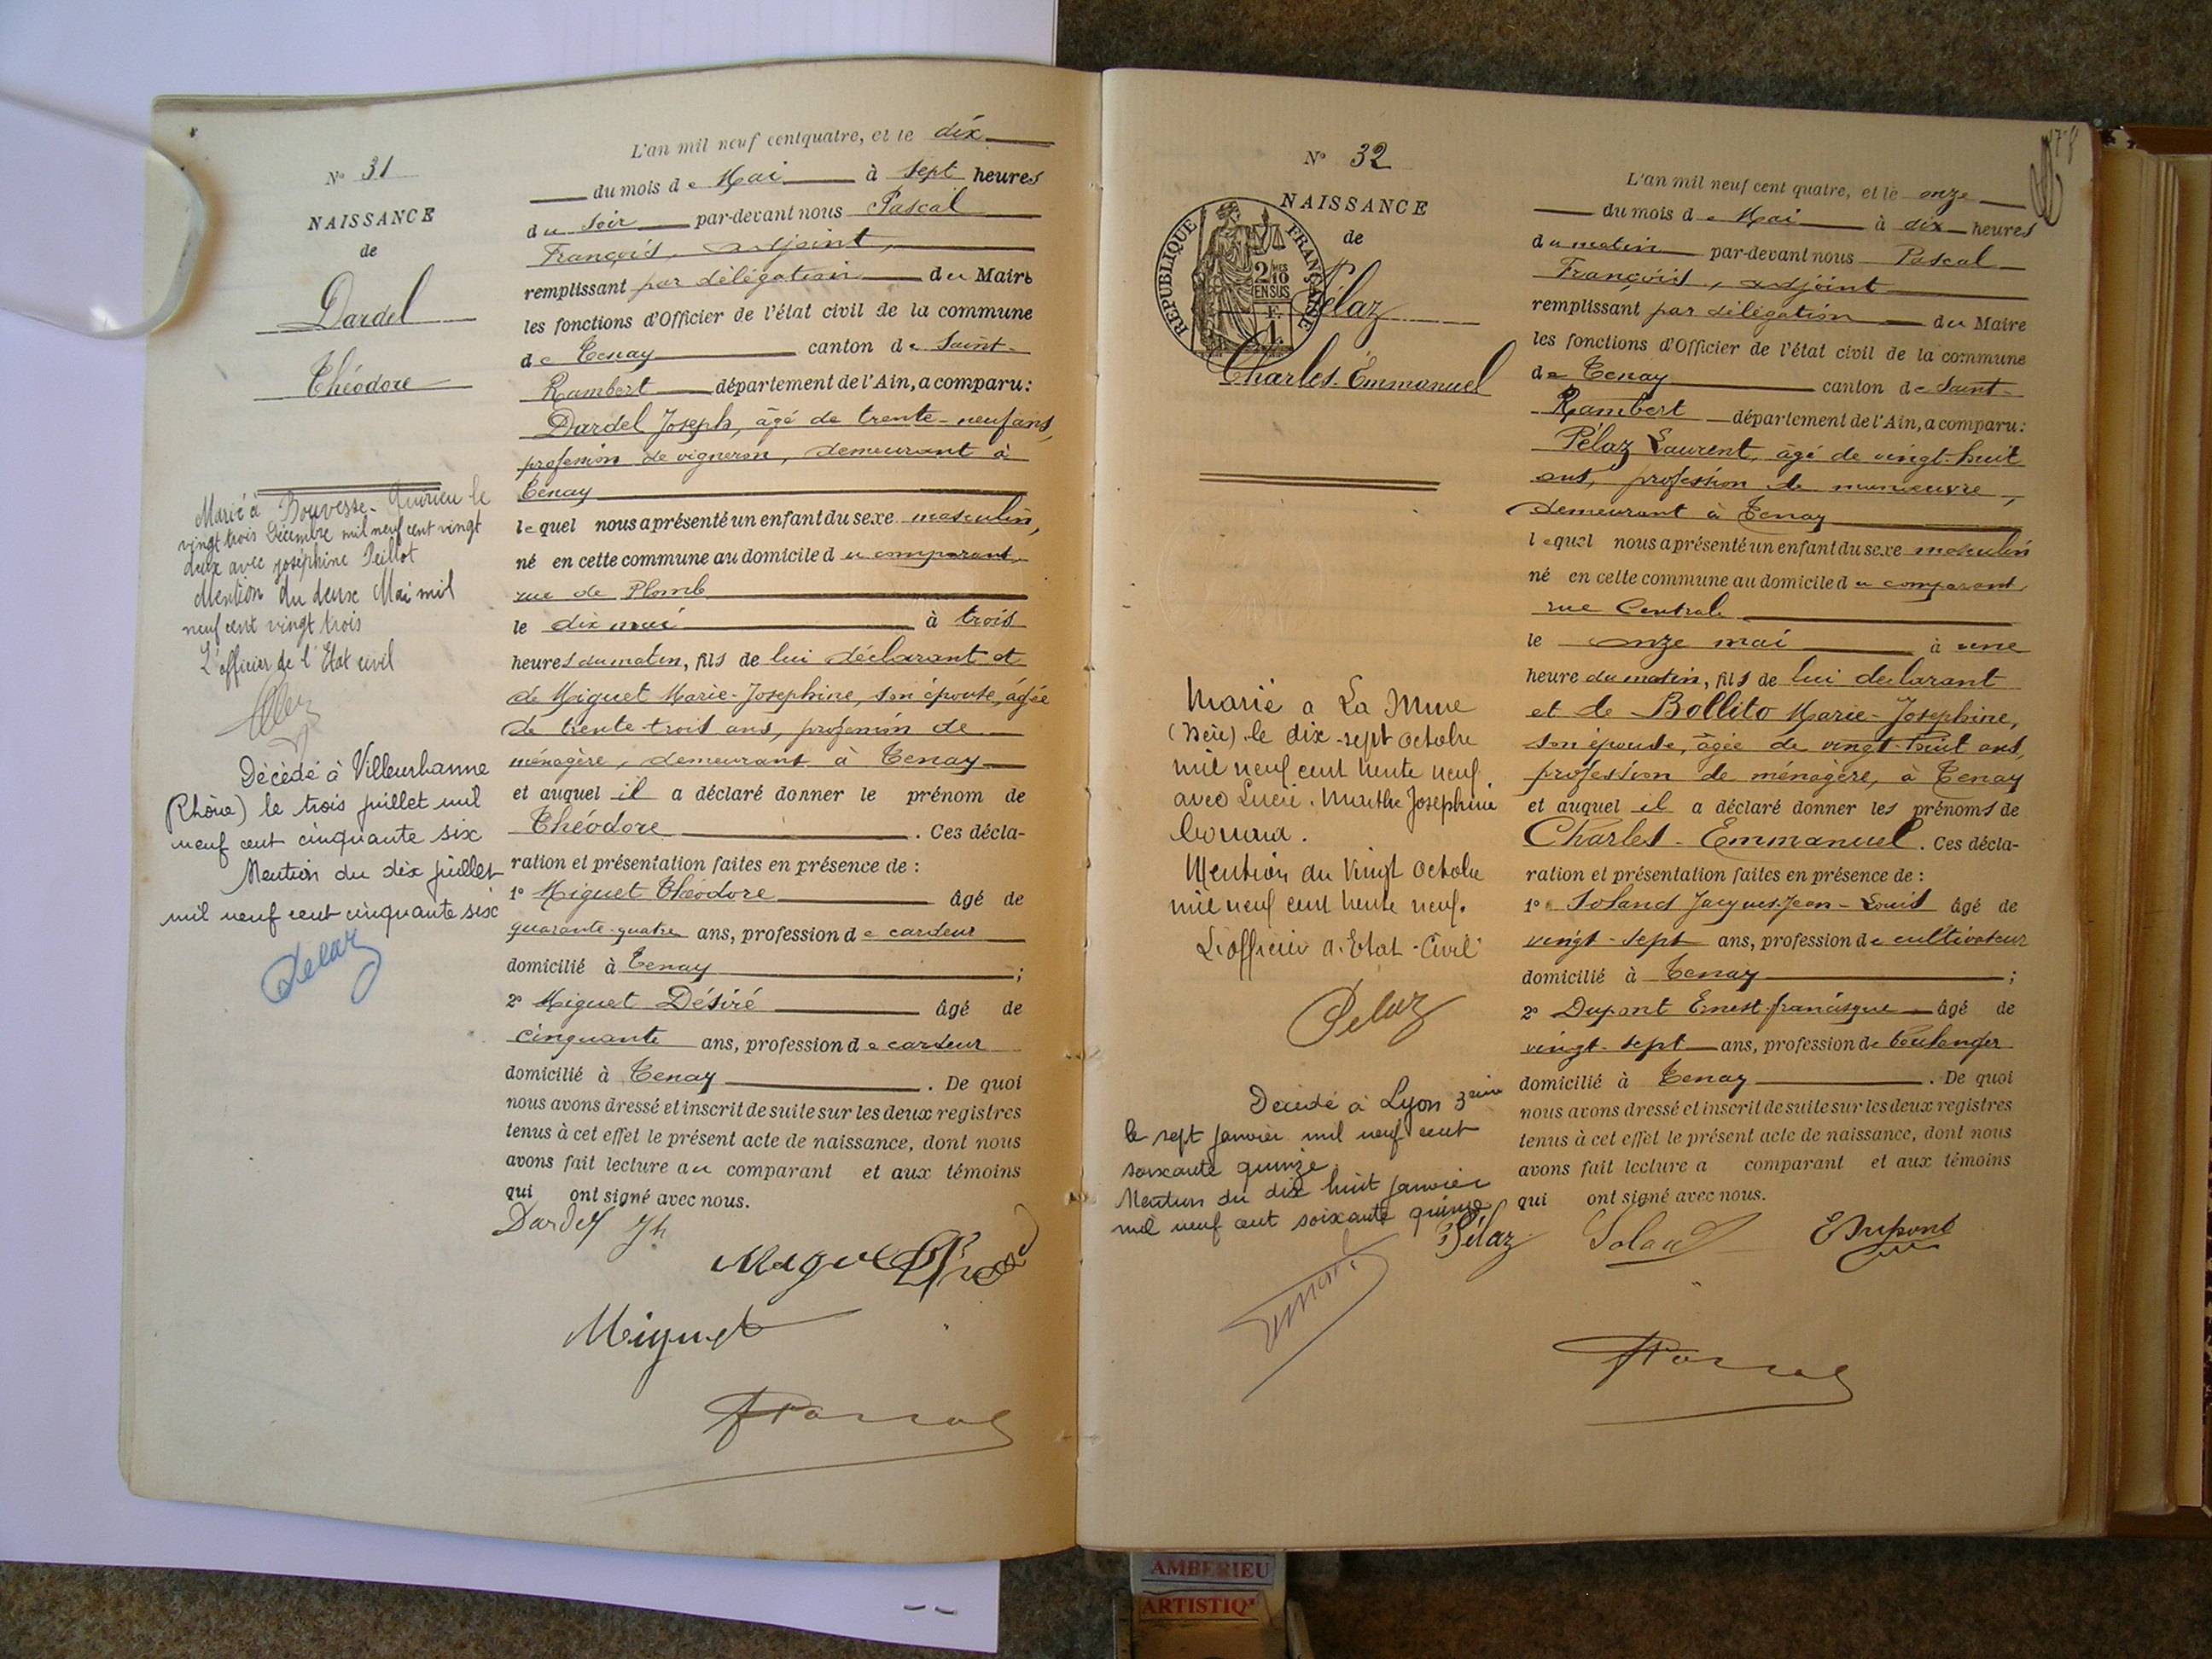 N° 31
NAISSANCE
de
Dardel
Théodore
Marié à Bouvesse-Quirieu le
vingt trois Décembre mil neuf cent vingt
deux avec Joséphine Peillot
Mention du deux Mai mil
neuf cent vingt trois
L'officier de l'Etat civil
Décédé à Villeurbanne
(Rhône) le trois juillet mil
neuf cent cinquante six
Mention du dix juillet
mil neuf cent cinquante six
Pelaz
L'an mil neuf cent quatre, et le dix
du mois de Mai à sept heures
du soir par-devant nous Pascal
François, adjoint,
remplissant par délégation du Maire
les fonctions d'Officier de l'état civil de la commune
de Tenay canton de Saint-
Rambert département de l'Ain, a comparu:
Dardel Joseph, âgé de trente-neuf ans,
profession de vigneron, demeurant à
Tenay
lequel nous a présenté un enfant du sexe masculin,
né en cette commune au domicile du comparant,
rue de Plomb
le dix mai à trois
heures du matin, fils de lui déclarant et
de Miguet Marie-Josephine, son épouse, âgée
de trente-trois ans, profession de
ménagère, demeurant à Tenay
et auquel il a déclaré donner le prénom de
Théodore. Ces décla-
ration et présentation faites en présence de :
1° Miguet Théodore âgé de
quarante-quatre ans, profession de cardeur
domicilié à Tenay ;
2° Miguet Désiré âgé de
cinquante ans, profession de cardeur
domicilié à Tenay. De quoi
nous avons dressé et inscrit de suite sur les deux registres
tenus à cet effet le présent acte de naissance, dont nous
avons fait lecture au comparant et aux témoins
qui ont signé avec nous.
Dardel Jh
Miguet
FPascal
N° 32
NAISSANCE
de
REPUBLIQUE FRANÇAISE
2/10
EN SUS
Pélaz
Charles-Emmanuel
Marié a La Mure
(Isère) le dix-sept octobre
mil neuf cent trente neuf
avec Lucie. Marthe Josephine
Mention du Vingt Octobre
mil neuf cent trente neuf.
L'officier d'Etat-Civil
Pelaz
Décédé à Lyon 3eme
le sept janvier mil neuf cent
soixante quinze
Mention du dix huit janvier
mil neuf cent soixante quinze
L'an mil neuf cent quatre, et le onze
du mois de Mai à dix heures
du matin par-devant nous Pascal
François, adjoint
remplissant par délégation du Maire
les fonctions d'Officier de l'état civil de la commune
de Tenay canton de Saint-
Rambert département de l'Ain, a comparu:
Pélaz Laurent, âgé de vingt-huit
ans, profession de manœuvre,
demeurant à Tenay
lequel nous a présenté un enfant du sexe masculin
né en cette commune au domicile du comparant,
rue Centrale
le onze mai à une
heure du matin, fils de lui déclarant
et de Bollito Marie-Josephine,
son épouse, âgée de vingt-huit ans,
profession de ménagère, à Tenay
et auquel il a déclaré donner les prénoms de
Charles-Emmanuel. Ces décla-
ration et présentation faites en présence de :
1° Soland Jacques-Jean-Louis âgé de
vingt-sept ans, profession de cultivateur
domicilié à Tenay ;
2° Dupont Ernest-francisque âgé de
vingt-sept ans, profession de boulanger
domicilié à Tenay. De quoi
nous avons dressé et inscrit de suite sur les deux registres
tenus à cet effet le présent acte de naissance, dont nous
avons fait lecture a comparant et aux témoins
qui ont signé avec nous.
Pélaz Soland E Dupont
FPascal
AMBERIEU
ARTISTIQ